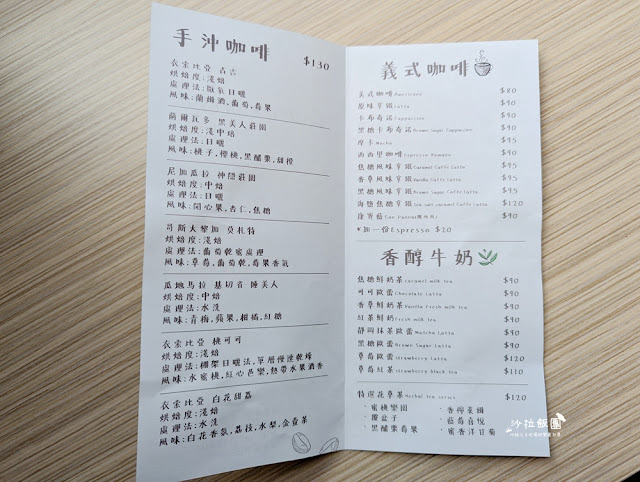 手沖咖啡 $130
衣索比亞 古吉
烘焙度:淺焙
處理法:厭氧日曬
風味:蘭姆酒,葡萄,莓果
薩爾瓦多 黑美人莊園
烘焙度:淺中焙
處理法:日曬
風味:桃子,櫻桃,黑醋栗,甜橙
尼加瓜拉 神隱莊園
烘焙度:中焙
處理法:日曬
風味:開心果,杏仁,焦糖
哥斯大黎加 莫札特
烘焙度:淺焙
處理法:葡萄乾蜜處理
風味:草莓,葡萄乾,莓果香氣
瓜地馬拉 基切音 睡美人
烘焙度:中焙
處理法:水洗
風味:青梅,蘋果,柑橘,紅糖
衣索比亞 桃可可
烘焙度:淺焙
處理法:棚架日曬法,單層慢速乾燥
風味:水蜜桃,紅心芭樂,熱帶水果酒香
衣索比亞 白花甜荔
烘焙度:淺焙
處理法:水洗
風味:白花香氛,荔枝,水梨,金萱茶
義式咖啡
美式咖啡Americano $80
原味拿鐵Latte $90
卡布奇諾Cappuccino $90
黑糖卡布奇諾Brown Sugar Cappuccino $95
摩卡Mocha $95
西西里咖啡Espresso Romano $90
焦糖風味拿鐵Caramel Caffe Latte $95
香草風味拿鐵Vanilla Caffe Latte $95
黑糖風味拿鐵Brown Sugar Caffe Latte $95
海鹽焦糖拿鐵Sea salt caramel Caffe Latte $120
康寶藍Con Panna $90
*加一份Espresso $20
香醇牛奶
焦糖鮮奶茶caramel milk tea $90
可可歐蕾Chocolate Latte $90
香草鮮奶茶Vanilla Fresh milk tea $90
紅茶鮮奶Fresh milk tea $90
靜岡抹茶歐蕾Matcha Latte $90
黑糖歐蕾Brown Sugar Latte $90
草莓歐蕾strawberry Latte $120
草莓紅茶strawberry black tea $110
特選花草茶Herbal tea series $120
·蜜桃樂園 ·香檸菓緻
·覆盆子 ·藍莓喜悅
·黑醋栗莓果 ·蜜香洋甘菊
沙拉飯團